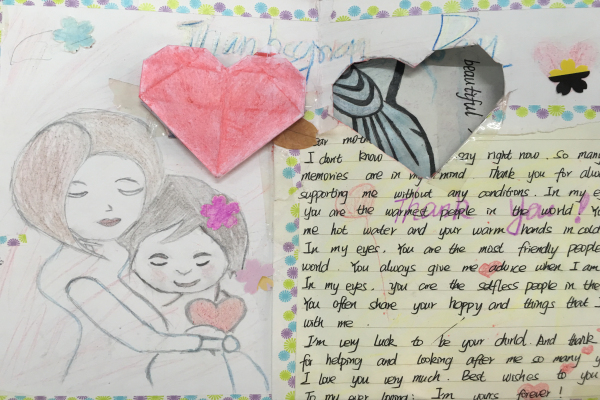 Thanksgiving Day
beautiful
Dear moth
I dont know right now. So many
memories are in my mind Thank you for alwa
supporting me without any conditions. In my e
you are the warmest people in the world. Yo
me hot water and your warm hands in cold
In my eyes. You are the most friendly people
world. You always give me advice when I am
In my eyes. you are the selfless people in the
You often share your happy and things that I
with me.
I'm very luck to be your child. And thank
for helping and looking after me so many y
I love you very much. Best wishes to you
To my ever loving: I'm yours forever!
Thank you!